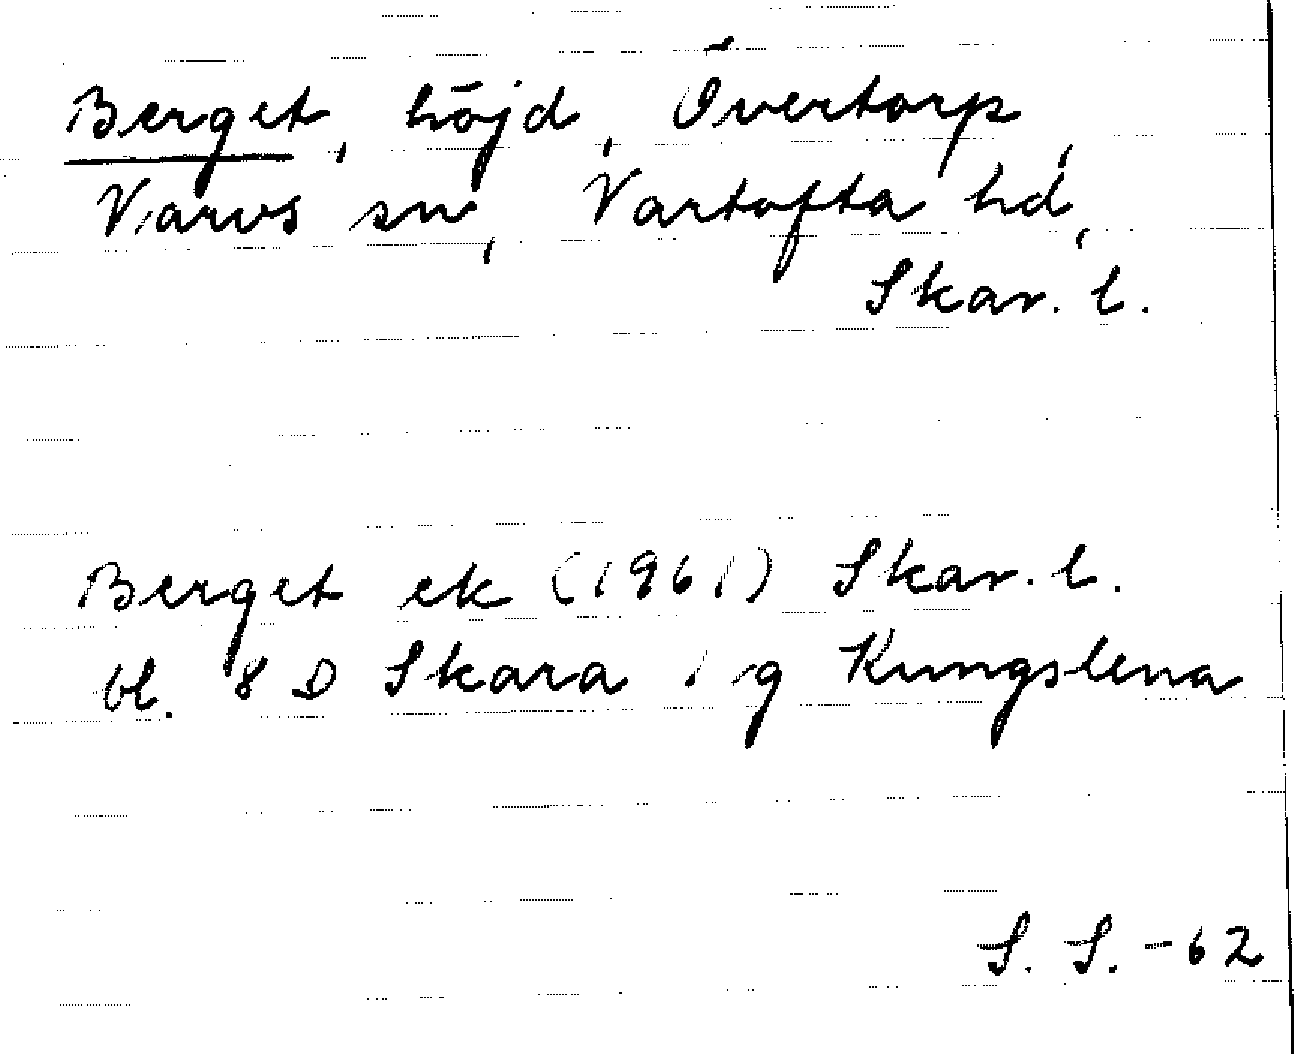 Berget, höjd, Övertorp,
Varvs sn, Vartofta hd,
Skar. l.
Berget ek (1961) Skar. l.
bl. 8 D Skara 1 g Kungslena
S. S. -62